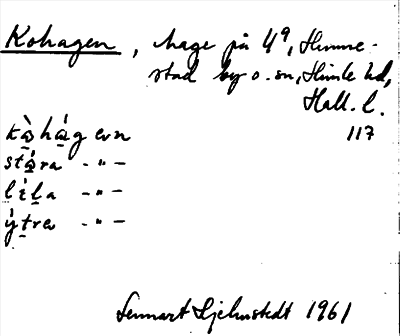 Kohagen, hage på 4⁹, Himme-
stad by o. sn, Himle hd,
Hall. l.
117
kạ̀ hạ́g evn
stạ́ra -"-
lị́ḷa -"-
ýtre -"-
Lennart Hjelmstedt 1961